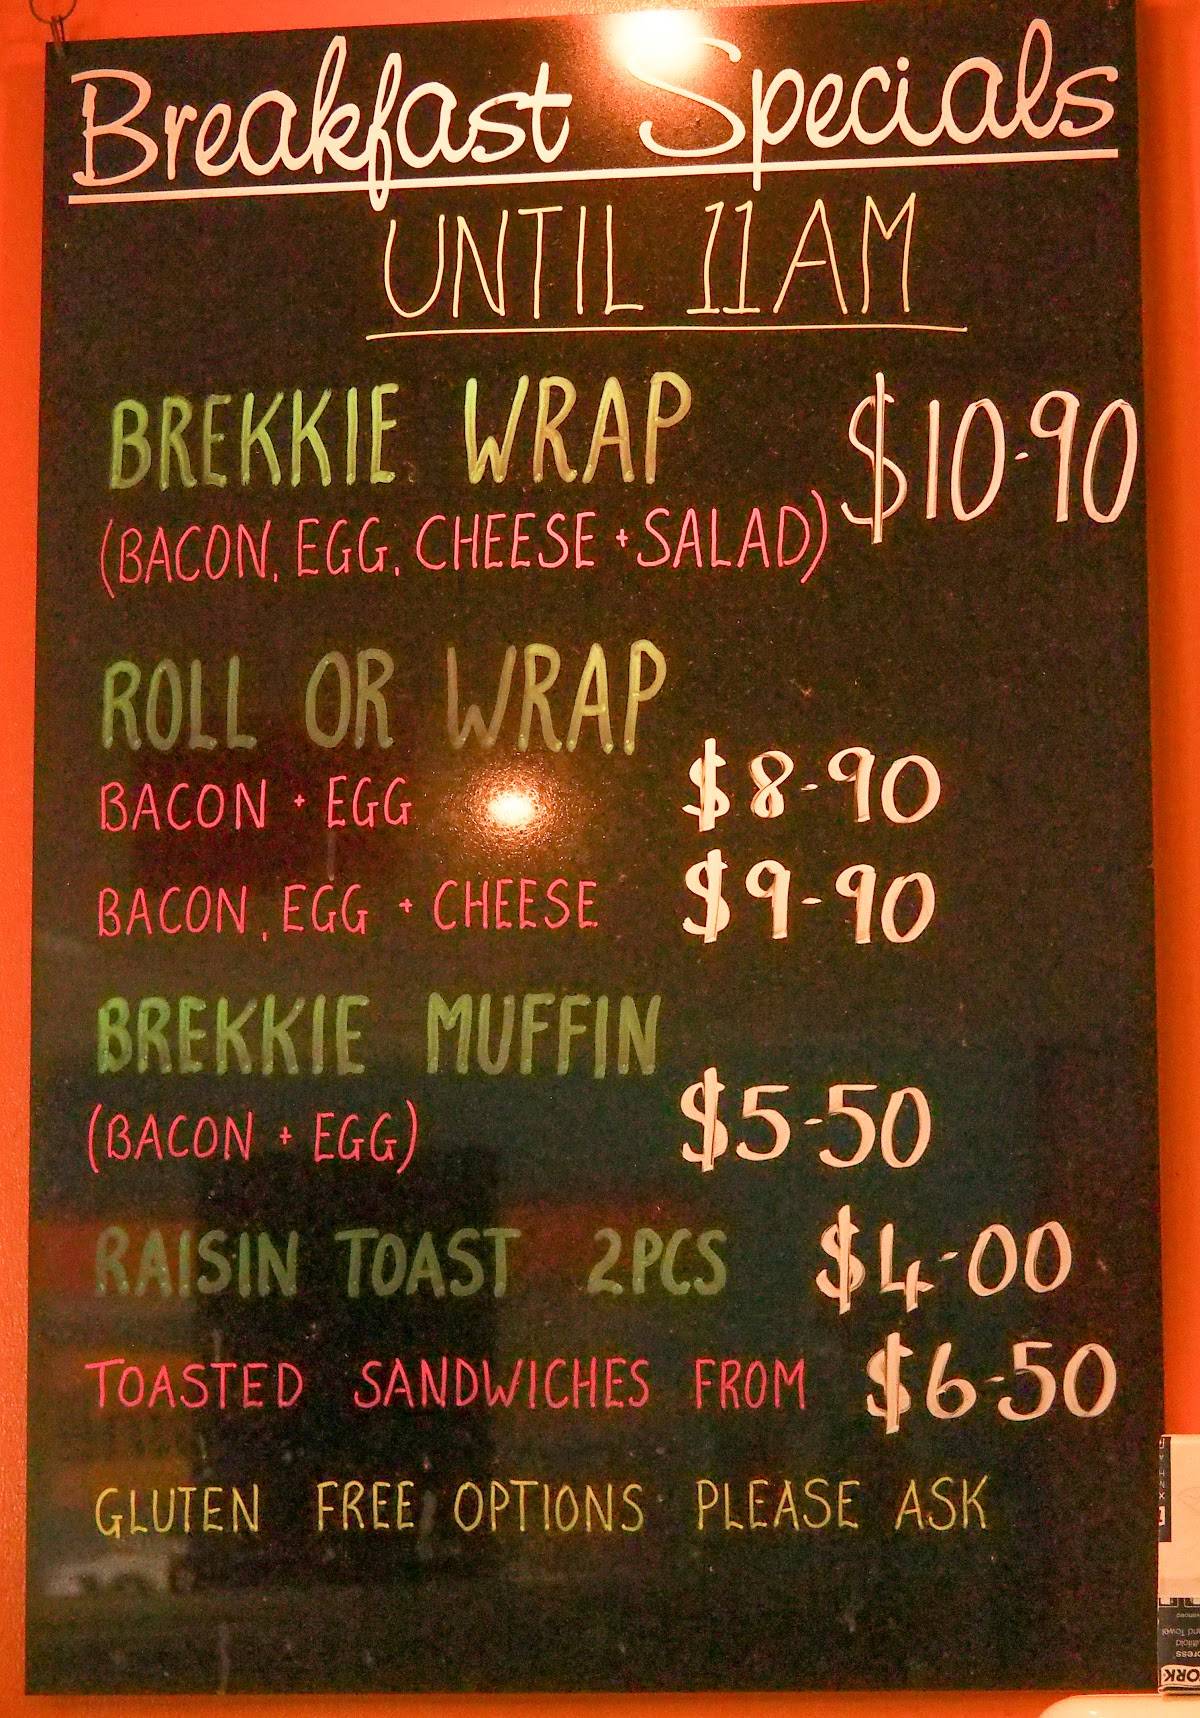 Breakfast Specials
UNTIL 11AM
BREKKIE WRAP $10-90
(BACON, EGG, CHEESE + SALAD)
ROLL OR WRAP
BACON + EGG $8-90
BACON, EGG + CHEESE $9-90
BREKKIE MUFFIN
(BACON + EGG) $5-50
RAISIN TOAST 2PCS $4-00
TOASTED SANDWICHES FROM $6-50
GLUTEN FREE OPTIONS PLEASE ASK